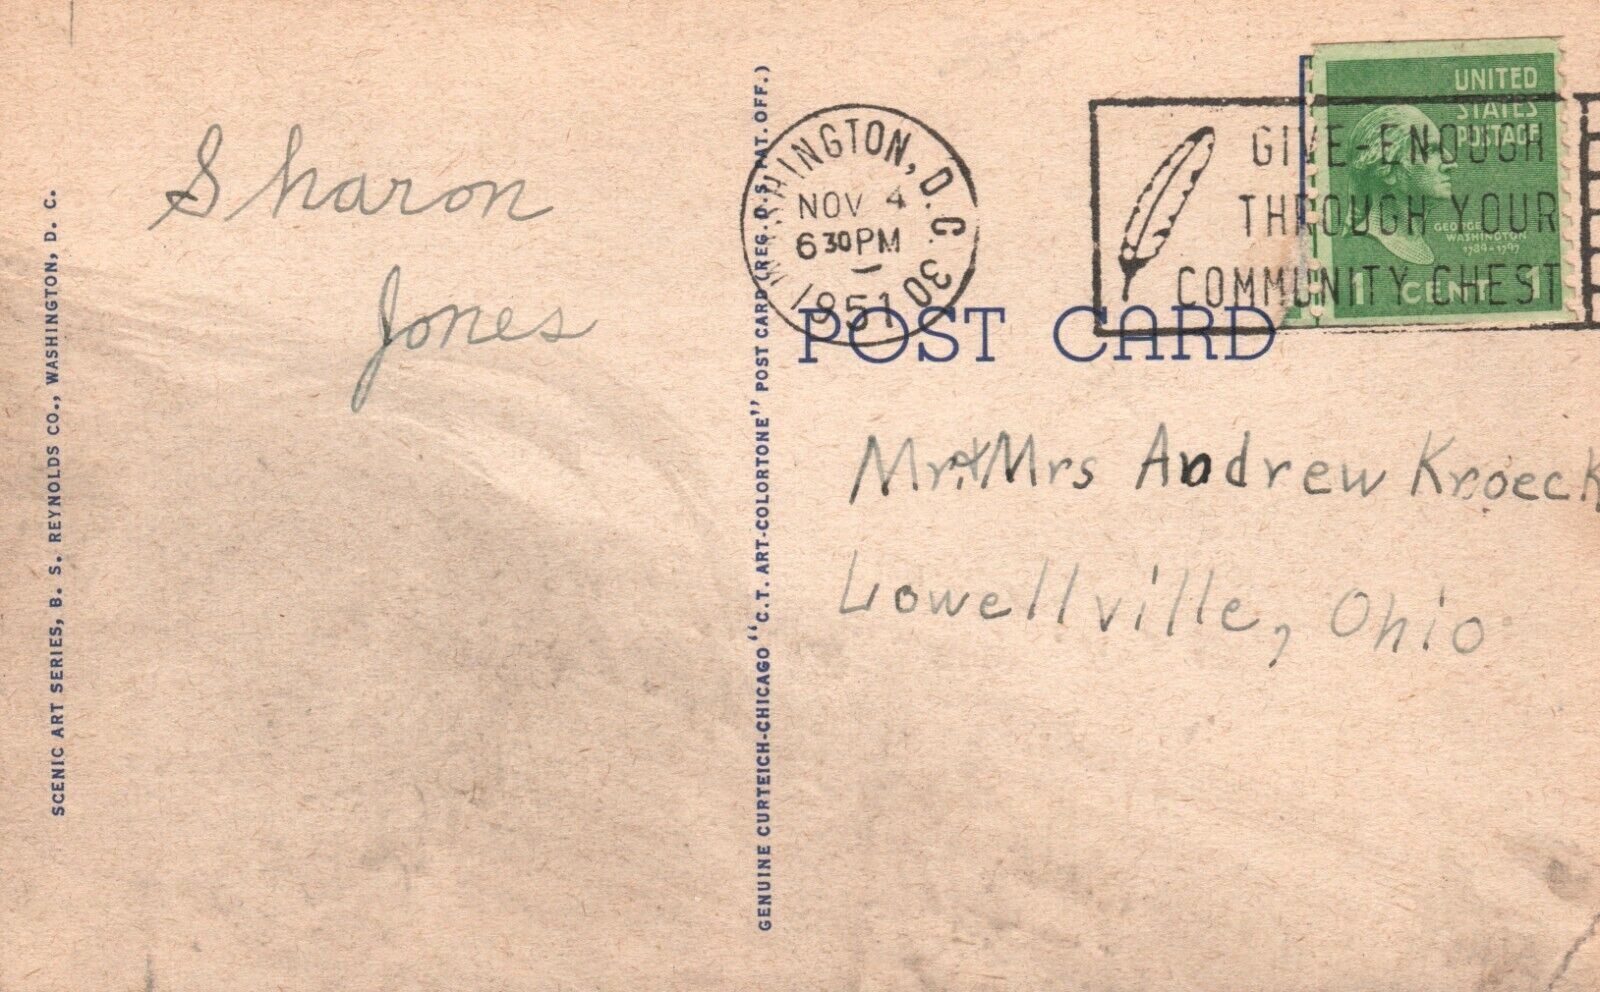 SCENIC ART SERIES, B. S. REYNOLDS CO., WASHINGTON, D. C.
Sharon
Jones
GENUINE CURTEICH-CHICAGO "C.T. ART-COLORTONE" POST CARD (REG. U.S. PAT. OFF.)
WASHINGTON, D.C. 30
NOV 4
6 30 PM
1951
GIVE-ENOUGH
THROUGH YOUR
COMMUNITY CHEST
UNITED
STATES
POSTAGE
GEORGE
WASHINGTON
1789-1797
1 CENT 1
POST CARD
Mr.+Mrs Andrew Kroeck
Lowellville, Ohio